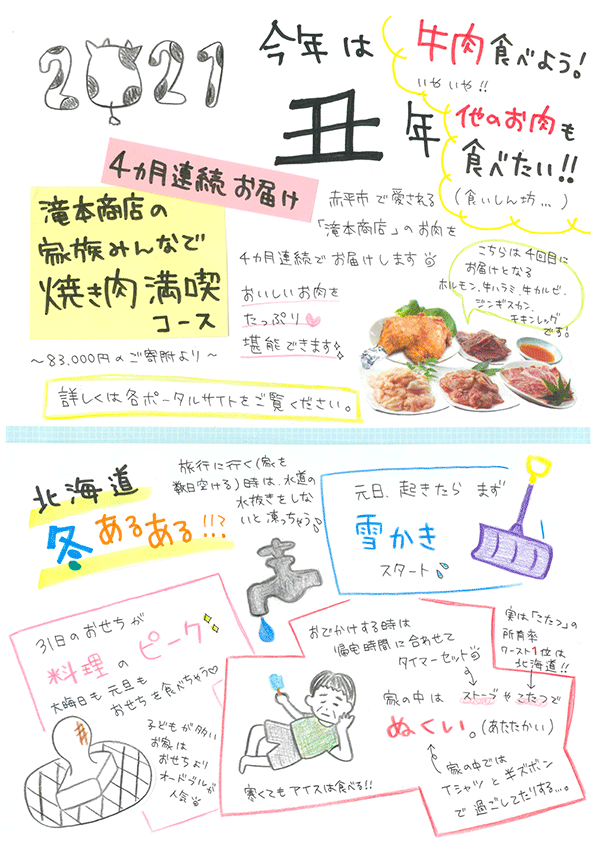 2021
今年は
丑年
牛肉食べよう!
いやいや!!
他のお肉も
食べたい!!
(食いしん坊…)
4カ月連続お届け
滝本商店の
家族みんなで
焼き肉満喫
コース
〜83,000円のご寄附より〜
赤平市で愛される
「滝本商店」のお肉を
4カ月連続でお届けします
おいしいお肉を
たっぷり
堪能できます
こちらは4回目に
お届けとなる
ホルモン、牛ハラミ、牛カルビ、
ジンギスカン、
チキンレッグ
です!
詳しくは各ポータルサイトをご覧ください。
北海道
冬あるある!!?
旅行に行く(家を
数日空ける)時は、水道の
水抜きをしな
いと凍っちゃう
元日、起きたらまず
雪かき
スタート
31日のおせちが
料理のピーク
大晦日も元旦も
おせちを食べちゃう
子どもが多い
お家は
おせちより
オードブルが
人気
おでかけする時は
帰宅時間に合わせて
タイマーセット
実は「こたつ」の
所有率
ワースト1位は
北海道!!
家の中はストーブやこたつで
ぬくい。(あたたかい)
家の中では
Tシャツと半ズボン
で過ごしてたりする…。
寒くてもアイスは食べる!!